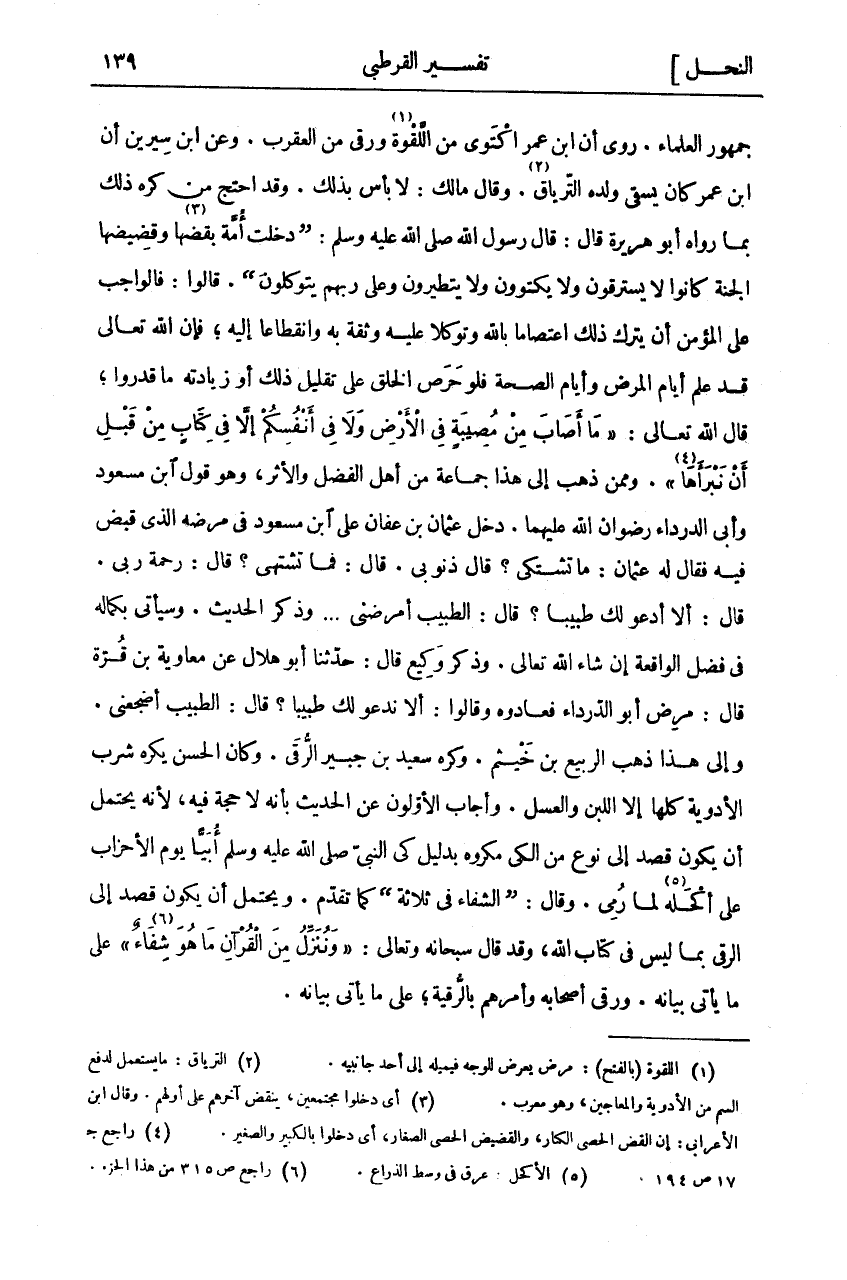 النحل] تفسير القرطبي ١٣٩
جمهور العلماء . روى أن ابن عمر اكْتَوى من اللَّقْوة(١) ورقى من العقرب . وعن ابن سيرين أن
ابن عمر كان يسقى ولده التّرياق(٢) . وقال مالك : لا بأس بذلك . وقد احتج من كره ذلك
بما رواه أبو هريرة قال : قال رسول الله صلى الله عليه وسلم : ”دخلت أُمّة بقضها وقضيضها(٣)
الجنة كانوا لا يسترقون ولا يكتوون ولا يتطيرون وعلى ربهم يتوكلون“ . قالوا : فالواجب
على المؤمن أن يترك ذلك اعتصاما بالله وتوكلا عليه وثقة به وانقطاعا إليه ؛ فإن الله تعالى
قد علم أيام المرض وأيام الصحة فلو حَرَص الخلق على تقليل ذلك أو زيادته ما قدروا ؛
قال الله تعالى : « مَا أَصَابَ مِنْ مُصِيبَةٍ فِى الْأَرْضِ وَلَا فِى أَنْفُسِكُمْ إلَّا فِى كِتَابٍ مِنْ قَبْلِ
أَنْ نَبْرَأَهَا(٤) » . وممن ذهب إلى هذا جماعة من أهل الفضل والأثر ، وهو قول ٱبن مسعود
وأبى الدرداء رضوان الله عليهما . دخل عثمان بن عفان على ٱبن مسعود فى مرضه الذى قبض
فيه فقال له عثمان : ما تشتكى ؟ قال ذنوبى . قال : فما تشتهى ؟ قال : رحمة ربى .
قال : ألا أدعو لك طبيبا ؟ قال : الطبيب أمرضنى ... وذكر الحديث . وسيأتى بكماله
فى فضل الواقعة إن شاء الله تعالى . وذكر وَكِيع قال : حدّثنا أبو هلال عن معاوية بن قُرّة
قال : مرض أبو الدّرداء فعادوه وقالوا : ألا ندعو لك طبيبا ؟ قال : الطبيب أضجعنى .
وإلى هذا ذهب الربيع بن خَيْثم . وكره سعيد بن جبير الرُّقَى . وكان الحسن يكره شرب
الأدوية كلها إلا اللبن والعسل . وأجاب الأوّلون عن الحديث بأنه لا حجة فيه ، لأنه يحتمل
أن يكون قصد إلى نوع من الكى مكروه بدليل كى النبىّ صلى الله عليه وسلم أُبَيًّا يوم الأحزاب
على أكْحَله(٥) لما رُمِى . وقال : ”الشفاء فى ثلاثة“ كما تقدّم . ويحتمل أن يكون قصد إلى
الرقى بما ليس فى كتاب الله ، وقد قال سبحانه وتعالى : « وَنُنَزِّلُ مِنَ الْقُرْآنِ مَا هُوَ شِفَاءٌ(٦) » على
ما يأتى بيانه . ورقى أصحابه وأمرهم بالرُّقية ؛ على ما يأتى بيانه .
(١) اللقوة (بالفتح) : مرض يعرض للوجه فيميله إلى أحد جانبيه . (٢) الترياق : مايستعمل لدفع
السم من الأدوية والمعاجين ، وهو معرب . (٣) أى دخلوا مجتمعين ، ينقض آخرهم على أولهم . وقال ابن
الأعرابى : إن القض الحصى الكبار ، والقضيض الحصى الصغار ، أى دخلوا بالكبير والصغير . (٤) راجع جـ
١٧ ص ١٩٤ . (٥) الأكحل : عرق فى وسط الذراع . (٦) راجع ص ٣١٥ من هذا الجزء .